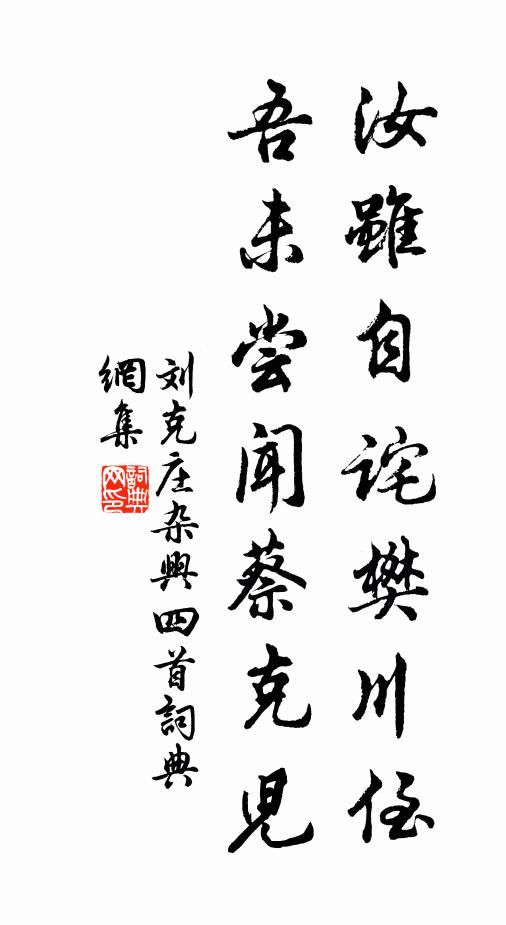 汝雖自詫樊川侄
吾未尝闻蔡克児
刘克庄杂興四首詞典
網集
詞典网印